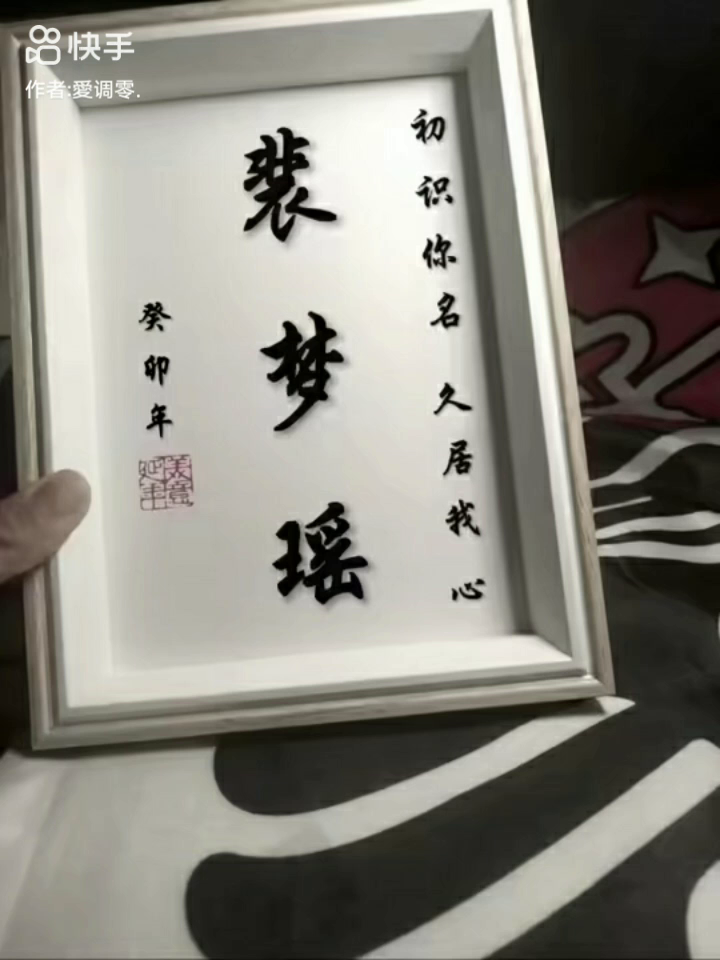 快手
作者:愛调零.
初识你名 久居我心
裴梦瑶
癸卯年
美意延年